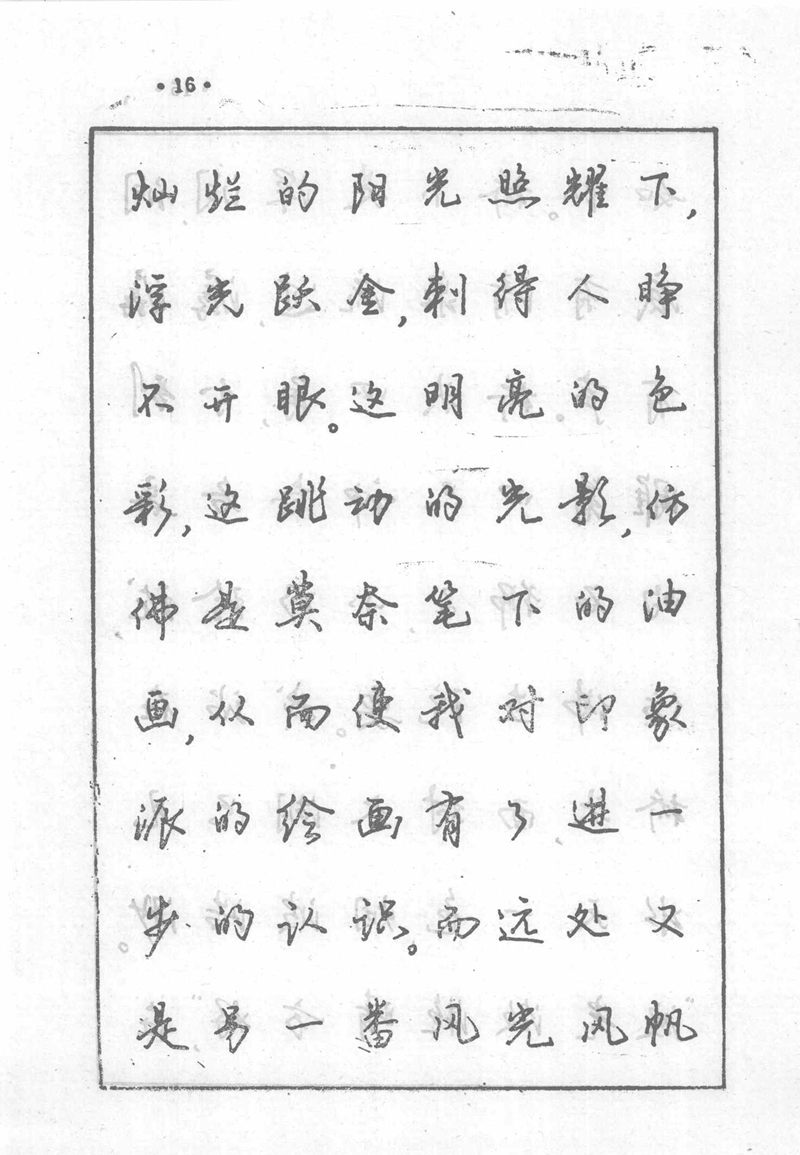 ·16·
灿烂的阳光照耀下,
浮光跃金,刺得人睁
不开眼。这明亮的色
彩,这跳动的光影,仿
佛是莫奈笔下的油
画,从而使我对印象
派的绘画有了进一
步的认识。而远处又
是另一番风光风帆